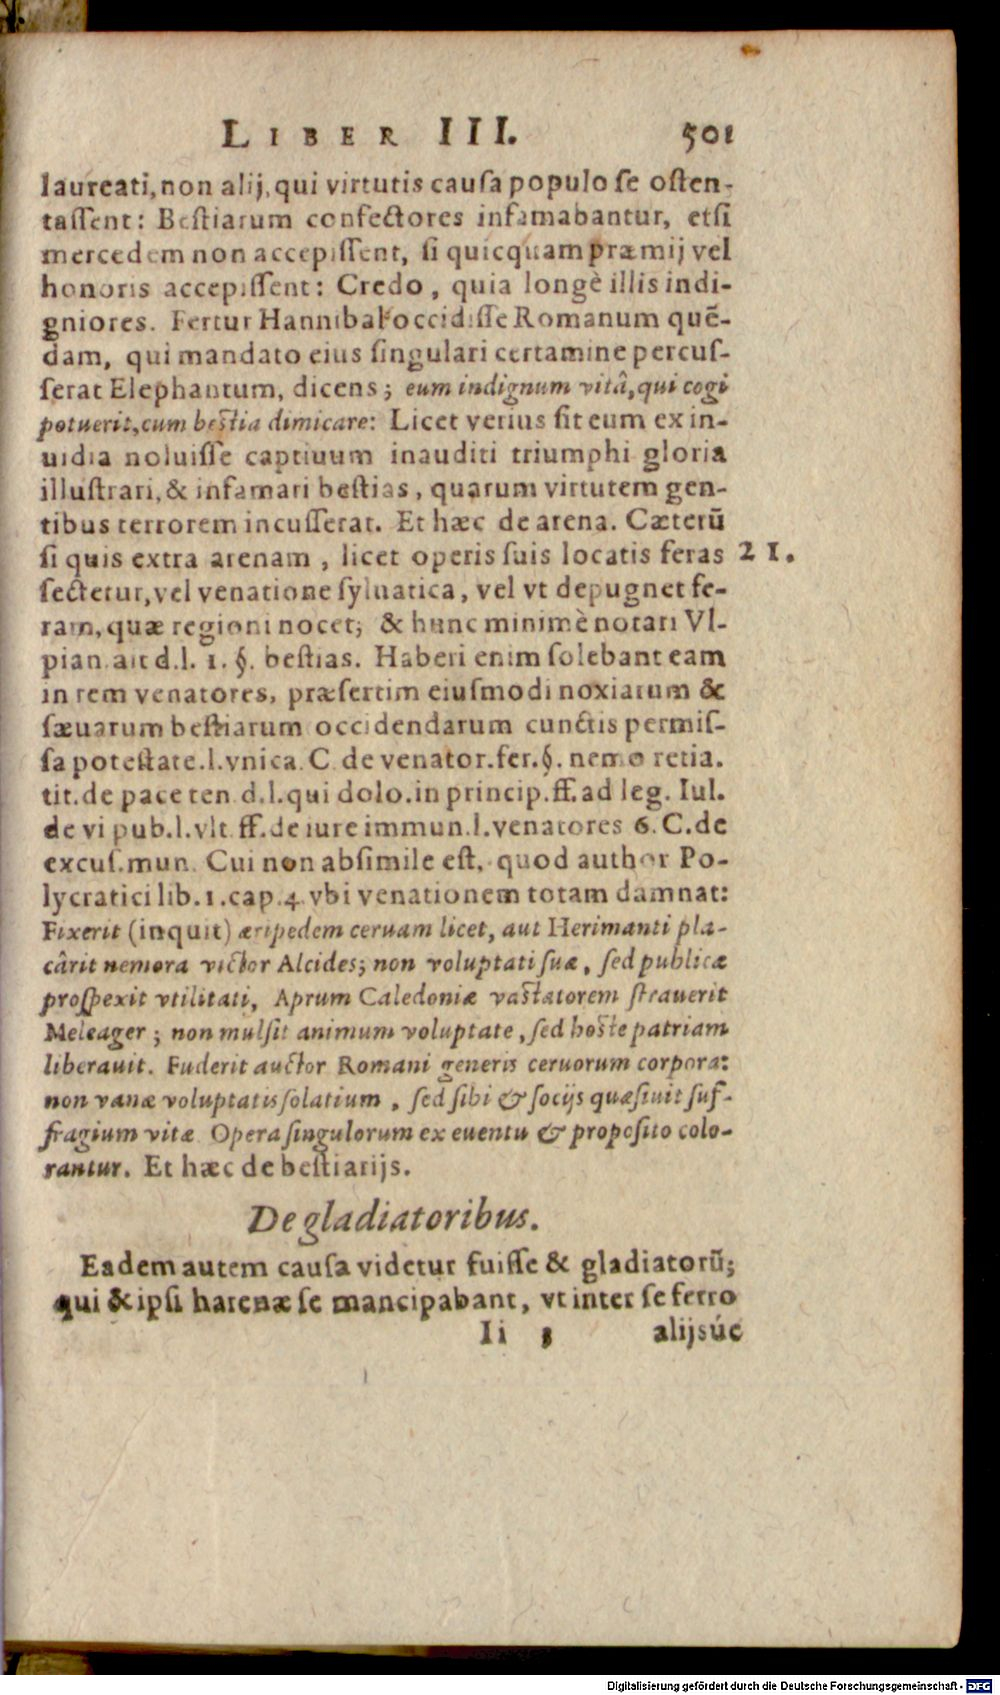 LIBER III. 501
laureati, non alij, qui virtutis cauſa populo ſe oſten-
taſſent: Beſtiarum confectores infamabantur, etſi
mercedem non accepiſſent, ſi quicquam præmij vel
honoris accepiſſent: Credo, quia longè illis indi-
gniores. Fertur Hannibal occidiſſe Romanum quẽ-
dam, qui mandato eius ſingulari certamine percuſ-
ſerat Elephantum, dicens; eum indignum vitâ, qui cogi
potuerit, cum beſtia dimicare: Licet verius ſit eum ex in-
uidia noluiſſe captiuum inauditi triumphi gloria
illuſtrari, & infamari beſtias, quarum virtutem gen-
tibus terrorem incuſſerat. Et hæc de arena. Cæterũ
ſi quis extra arenam, licet operis ſuis locatis feras 21.
ſectetur, vel venatione ſyluatica, vel vt depugnet fe-
ram, quæ regioni nocet; & hunc minimè notari Vl-
pian. ait d.l. 1. §. beſtias. Haberi enim ſolebant eam
in rem venatores, præſertim eiuſmodi noxiarum &
ſæuarum beſtiarum occidendarum cunctis permiſ-
ſa poteſtate. l. vnica. C. de venator. fer. §. nemo retia.
tit. de pace ten. d.l. qui dolo. in princip. ff. ad leg. Iul.
de vi pub. l. vlt. ff. de iure immun. l. venatores 6. C. de
excuſ. mun. Cui non abſimile eſt, quod author Po-
lycratici lib. 1. cap. 4. vbi venationem totam damnat:
Fixerit (inquit) æripedem ceruam licet, aut Herimanti pla-
cârit nemora victor Alcides; non voluptati ſuæ, ſed publicæ
proſpexit vtilitati, Aprum Caledoniæ vaſtatorem ſtrauerit
Meleager; non mulſit animum voluptate, ſed hoſte patriam
liberauit. Fuderit auctor Romani generis ceruorum corpora:
non vanæ voluptatis ſolatium, ſed ſibi & ſocijs quæſiuit ſuf-
fragium vitæ. Opera ſingulorum ex euentu & propoſito colo-
rantur. Et hæc de beſtiarijs.
De gladiatoribus.
Eadem autem cauſa videtur fuiſſe & gladiatorũ;
qui & ipſi harenæ ſe mancipabant, vt inter ſe ferro
Ii 3 alijsúe
Digitalisierung gefördert durch die Deutsche Forschungsgemeinschaft - DFG